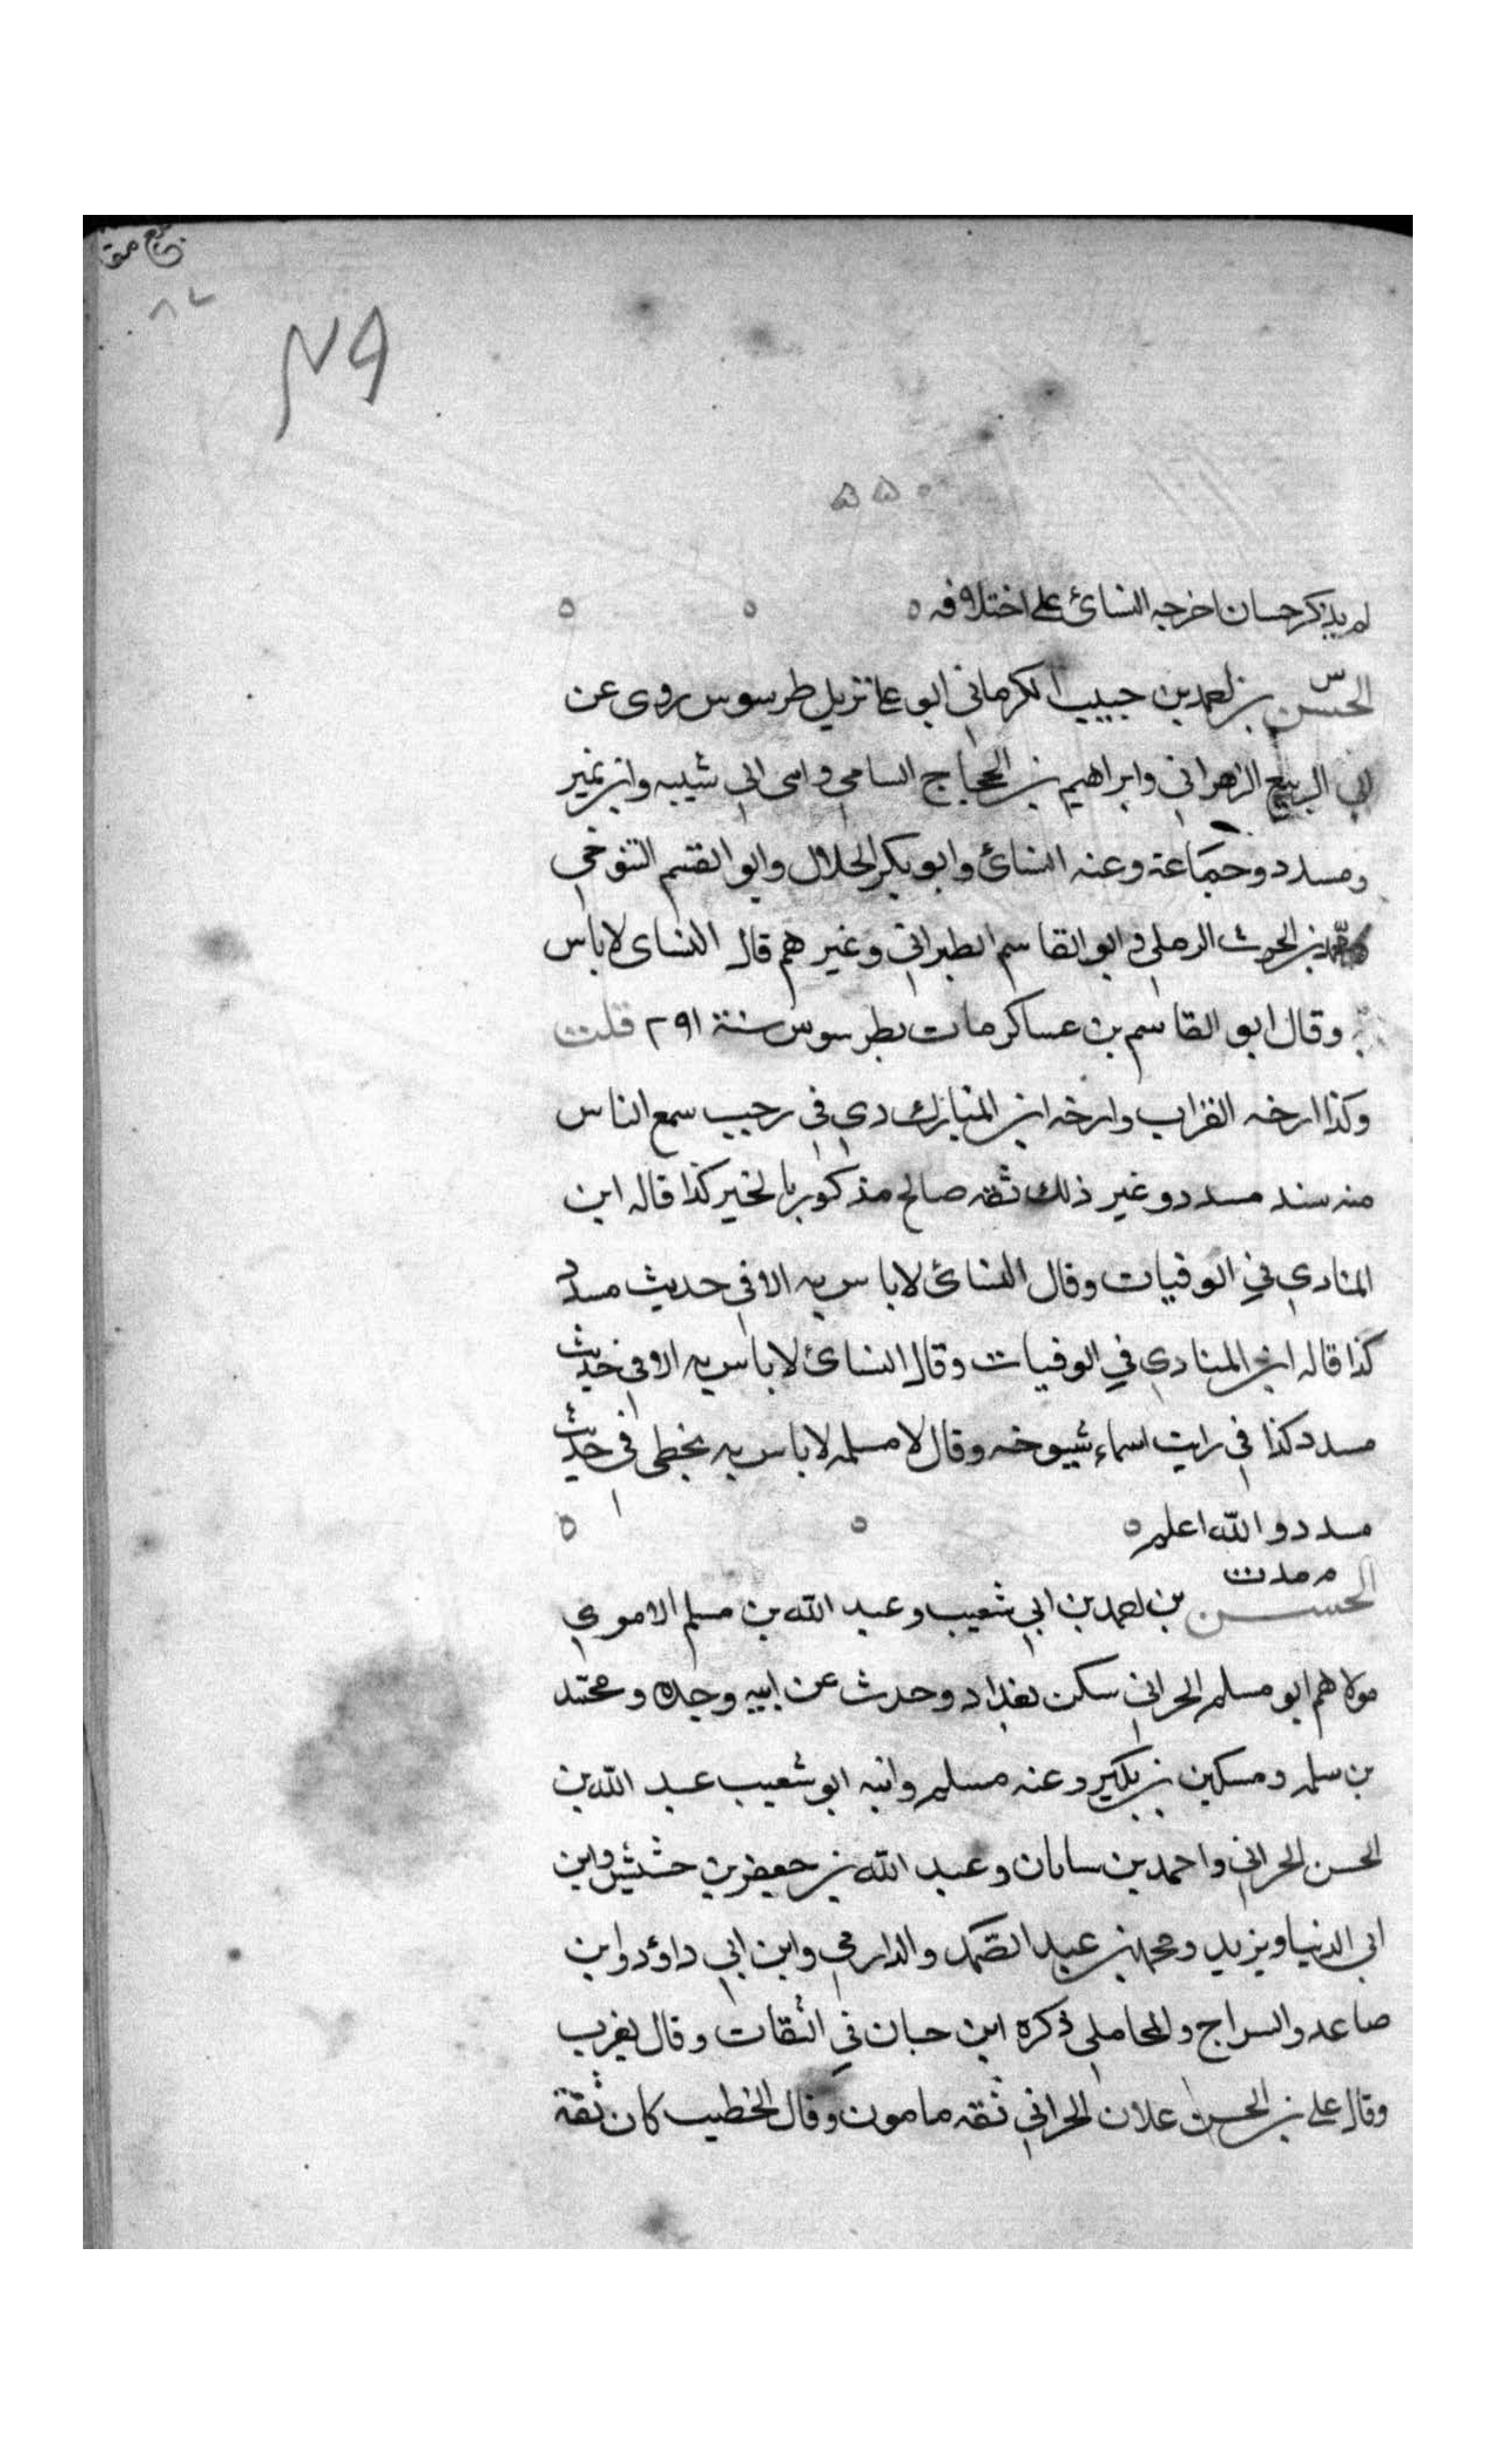 لم يذكر حسان اخرجه النسائ على اختلافه
س
الحسن بن احمد بن حبيب الكرماني ابو علي نزيل طرسوس روى عن
ابي الربيع الزهراني وابراهيم بن الحجاج السامي و ابي شيبه وابن نمير
ومسدد وجماعة وعنه النسائ وابو بكر الخلال وابو القسم التنوخي
محمد بن الحرث الرملي و ابو القاسم الطبراني وغير هم قال النساى لا باس
به وقال ابو القاسم بن عساكر مات بطرسوس سنة ٢٩١ قلت
وكذا ارخه القراب وارخه ابن المبارك دي في رجب سمع الناس
منه سند مسدد وغير ذلك ثقه صالح مذكور بالخير كذا قاله ابن
المنادي في الوفيات وقال النسائ لا باس به الا في حديث مسدد
كذا قاله ابن المنادي في الوفيات وقال النسائ لا باس به الا في حديث
مسدد كذا في رايت اسماء شيوخه وقال لا مسلمه لا باس به يخطى في حديث
مسدد والله اعلم
م مد ت
الحسن بن احمد بن ابي شعيب و عبد الله بن مسلم الاموي
مولاهم ابو مسلم الحراني سكن بغداد وحدث عن ابيه وجده و محمد
بن سلمه ومسكين بن بكير وعنه مسلم وابنه ابو شعيب عبد الله بن
الحسن الحراني و احمد بن سامان وعبد الله بن جعفر بن خشيش وابن
ابي الدنيا ويزيد ومحمد بن عبد الصمد والدارمي وابن ابي داؤد وابن
صاعد والسراج والمحاملي ذكره ابن حبان في الثقات وقال يغرب
وقال علي بن الحسن علان الحراني ثقه مامون وقال الخطيب كان ثقة